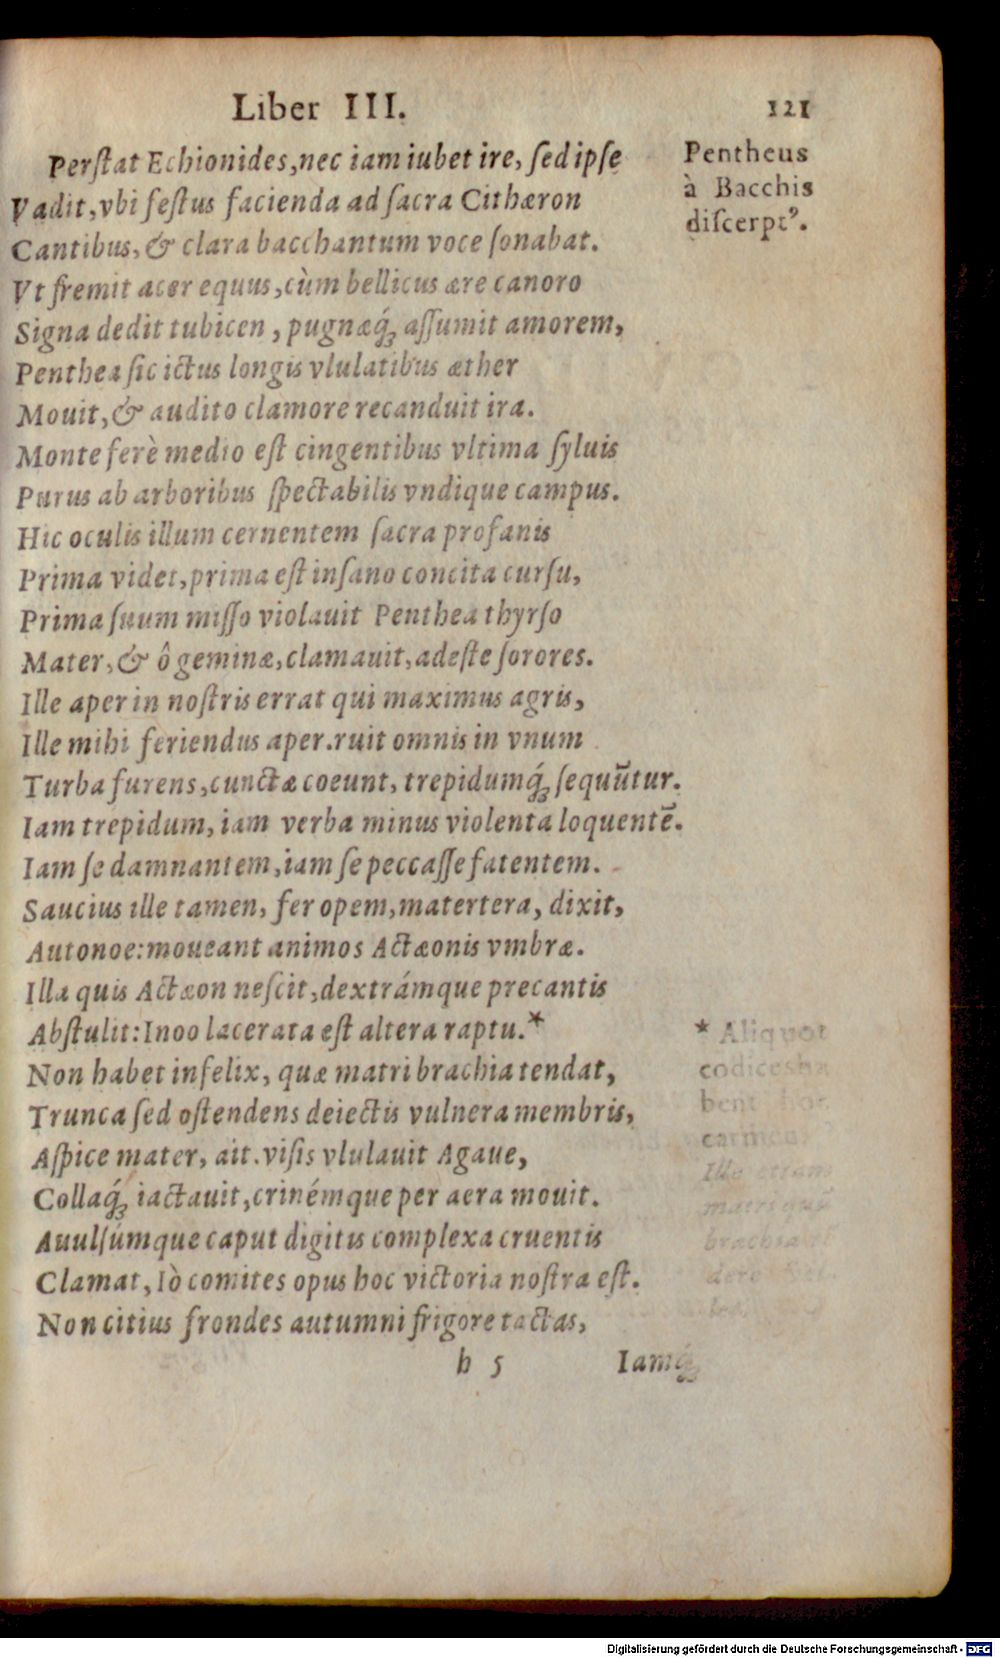 Liber III. 121
Perſtat Echionides, nec iam iubet ire, ſed ipſe
Vadit, vbi feſtus facienda ad ſacra Cithæron
Cantibus, & clara bacchantum voce ſonabat.
Vt fremit acer equus, cùm bellicus ære canoro
Signa dedit tubicen, pugnæq́ꝫ aſſumit amorem,
Penthea ſic ictus longis vlulatibus æther
Mouit, & audito clamore recanduit ira.
Monte ferè medio eſt cingentibus vltima ſyluis
Purus ab arboribus ſpectabilis vndique campus.
Hic oculis illum cernentem ſacra profanis
Prima videt, prima eſt inſano concita curſu,
Prima ſuum miſſo violauit Penthea thyrſo
Mater, & ô geminæ, clamauit, adeſte ſorores.
Ille aper in noſtris errat qui maximus agris,
Ille mihi feriendus aper. ruit omnis in vnum
Turba furens, cunctæ coeunt, trepidumq́ꝫ ſequūtur.
Iam trepidum, iam verba minus violenta loquentē.
Iam ſe damnantem, iam ſe peccaſſe fatentem.
Saucius ille tamen, fer opem, matertera, dixit,
Autonoe: moueant animos Actæonis vmbræ.
Illa quis Actæon neſcit, dextrámque precantis
Abſtulit: Inoo lacerata eſt altera raptu.*
Non habet infelix, quæ matri brachia tendat,
Trunca ſed oſtendens deiectis vulnera membris,
Aſpice mater, ait. viſis vlulauit Agaue,
Collaq́ꝫ iactauit, crinémque per aera mouit.
Auulſúmque caput digitis complexa cruentis
Clamat, Iò comites opus hoc victoria noſtra eſt.
Non citius frondes autumni frigore tactas,
h 5 Iamq́ꝫ
Pentheus
à Bacchis
diſcerptꝰ.
* Aliquot
codices ha
bent hoc
carmen
Ille etiam
matri
Digitalisierung gefördert durch die Deutsche Forschungsgemeinschaft - DFG